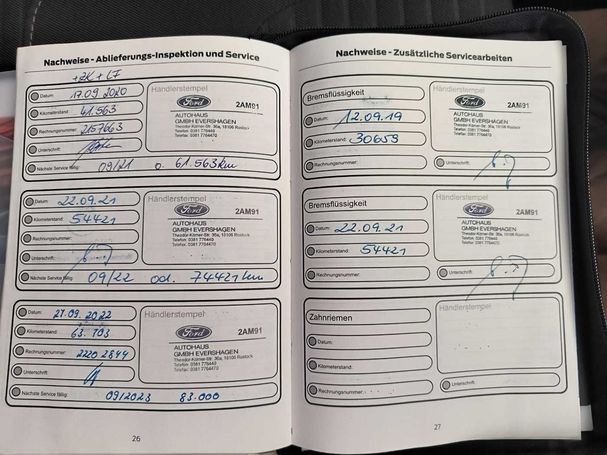 Nachweise - Ablieferungs-Inspektion und Service
+2K + LF
Datum: 17.09.2020
Kilometerstand: 41.563
Rechnungsnummer: 2157663
Unterschrift:
Nächste Service fällig: 09/21 o. 61.563km
Händlerstempel
Ford 2AM91
AUTOHAUS
GMBH EVERSHAGEN
Theodor-Körner-Str. 36a, 18106 Rostock
Telefon: 0381 776440
Telefax: 0381 7764470
Datum: 22.09.21
Kilometerstand: 54421
Rechnungsnummer:
Unterschrift:
Nächste Service fällig: 09/22 od. 74421 km
Händlerstempel
Ford 2AM91
AUTOHAUS
GMBH EVERSHAGEN
Theodor-Körner-Str. 36a, 18106 Rostock
Telefon: 0381 776440
Telefax: 0381 7764470
Datum: 27.09.2022
Kilometerstand: 63.703
Rechnungsnummer: 2220 2844
Unterschrift:
Nächste Service fällig: 09/2023 83.000
Händlerstempel
Ford 2AM91
AUTOHAUS
GMBH EVERSHAGEN
Theodor-Körner-Str. 36a, 18106 Rostock
Telefon: 0381 776440
Telefax: 0381 7764470
26
Nachweise - Zusätzliche Servicearbeiten
Bremsflüssigkeit
Datum: 12.09.19
Kilometerstand: 30659
Rechnungsnummer:
Händlerstempel
Ford 2AM91
AUTOHAUS
GMBH EVERSHAGEN
Theodor-Körner-Str. 36a, 18106 Rostock
Telefon: 0381 776440
Telefax: 0381 7764470
Unterschrift:
Bremsflüssigkeit
Datum: 22.09.21
Kilometerstand: 54421
Rechnungsnummer:
Händlerstempel
Ford 2AM91
AUTOHAUS
GMBH EVERSHAGEN
Theodor-Körner-Str. 36a, 18106 Rostock
Telefon: 0381 776440
Telefax: 0381 7764470
Unterschrift:
Zahnriemen
Datum:
Kilometerstand:
Rechnungsnummer:
Händlerstempel
Unterschrift:
27